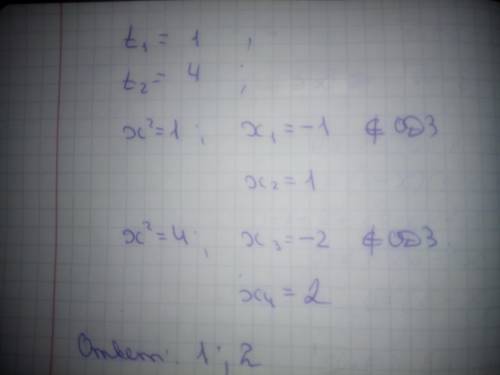 t₁ = 1 ;
t₂ = 4 ;
x² = 1 ; x₁ = -1 ∉ ОДЗ
x₂ = 1
x² = 4 ; x₃ = -2 ∉ ОДЗ
x₄ = 2
Ответ: 1 ; 2